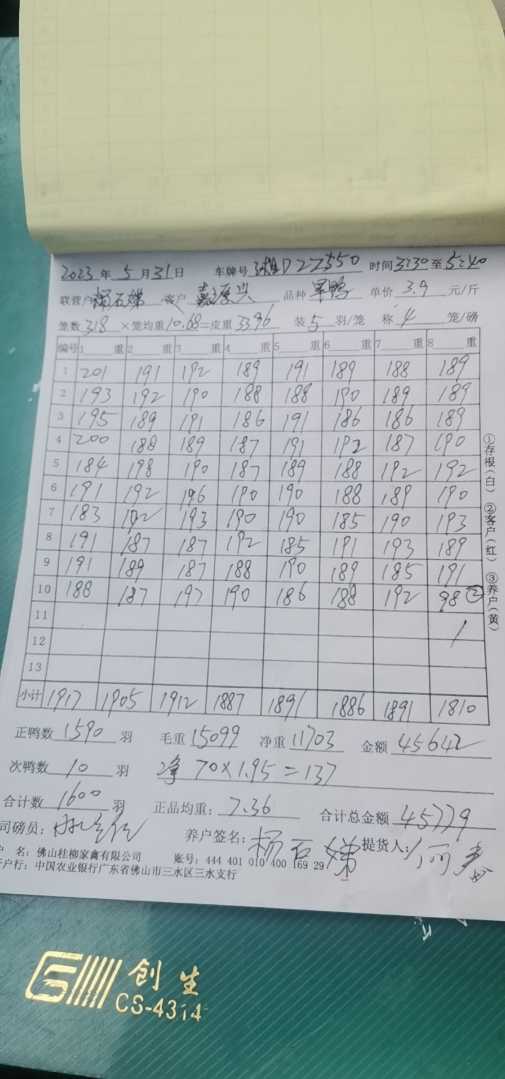 2023 年 5 月 31 日 车牌号 D22550 时间 3:30 至 5:40
联营户 杨石娣 客户 嘉康兴 品种 单鸭 单价 3.9 元/斤
笼数 318 ×笼均重 10.68 =皮重 3396 装 5 羽/笼 称 4 笼/磅
编号 1 重 2 重 3 重 4 重 5 重 6 重 7 重 8 重
1 201 191 192 189 191 189 188 189
2 193 192 190 188 188 190 189 189
3 195 189 191 186 191 186 186 189
4 200 188 189 187 191 192 187 190
5 184 198 190 187 189 188 192 192
6 191 192 196 190 190 188 189 190
7 183 192 193 190 190 185 190 193
8 191 187 187 192 185 191 193 189
9 191 189 187 188 190 189 185 191
10 188 187 197 190 186 188 192 98 ②
11
12
13
小计 1917 1905 1912 1887 1891 1886 1891 1810
正鸭数 1590 羽 毛重 15099 净重 11703 金额 45642
次鸭数 10 羽 净 70×1.95=137
合计数 1600 羽 正品均重: 7.36 合计总金额 45779
司磅员: 养户签名: 杨石娣 提货人:
户 名: 佛山桂柳家禽有限公司 账号: 444 401 010 400 169 29
开户行: 中国农业银行广东省佛山市三水区三水支行
①存根(白) ②客户(红) ③养户(黄)
创生
CS-4314